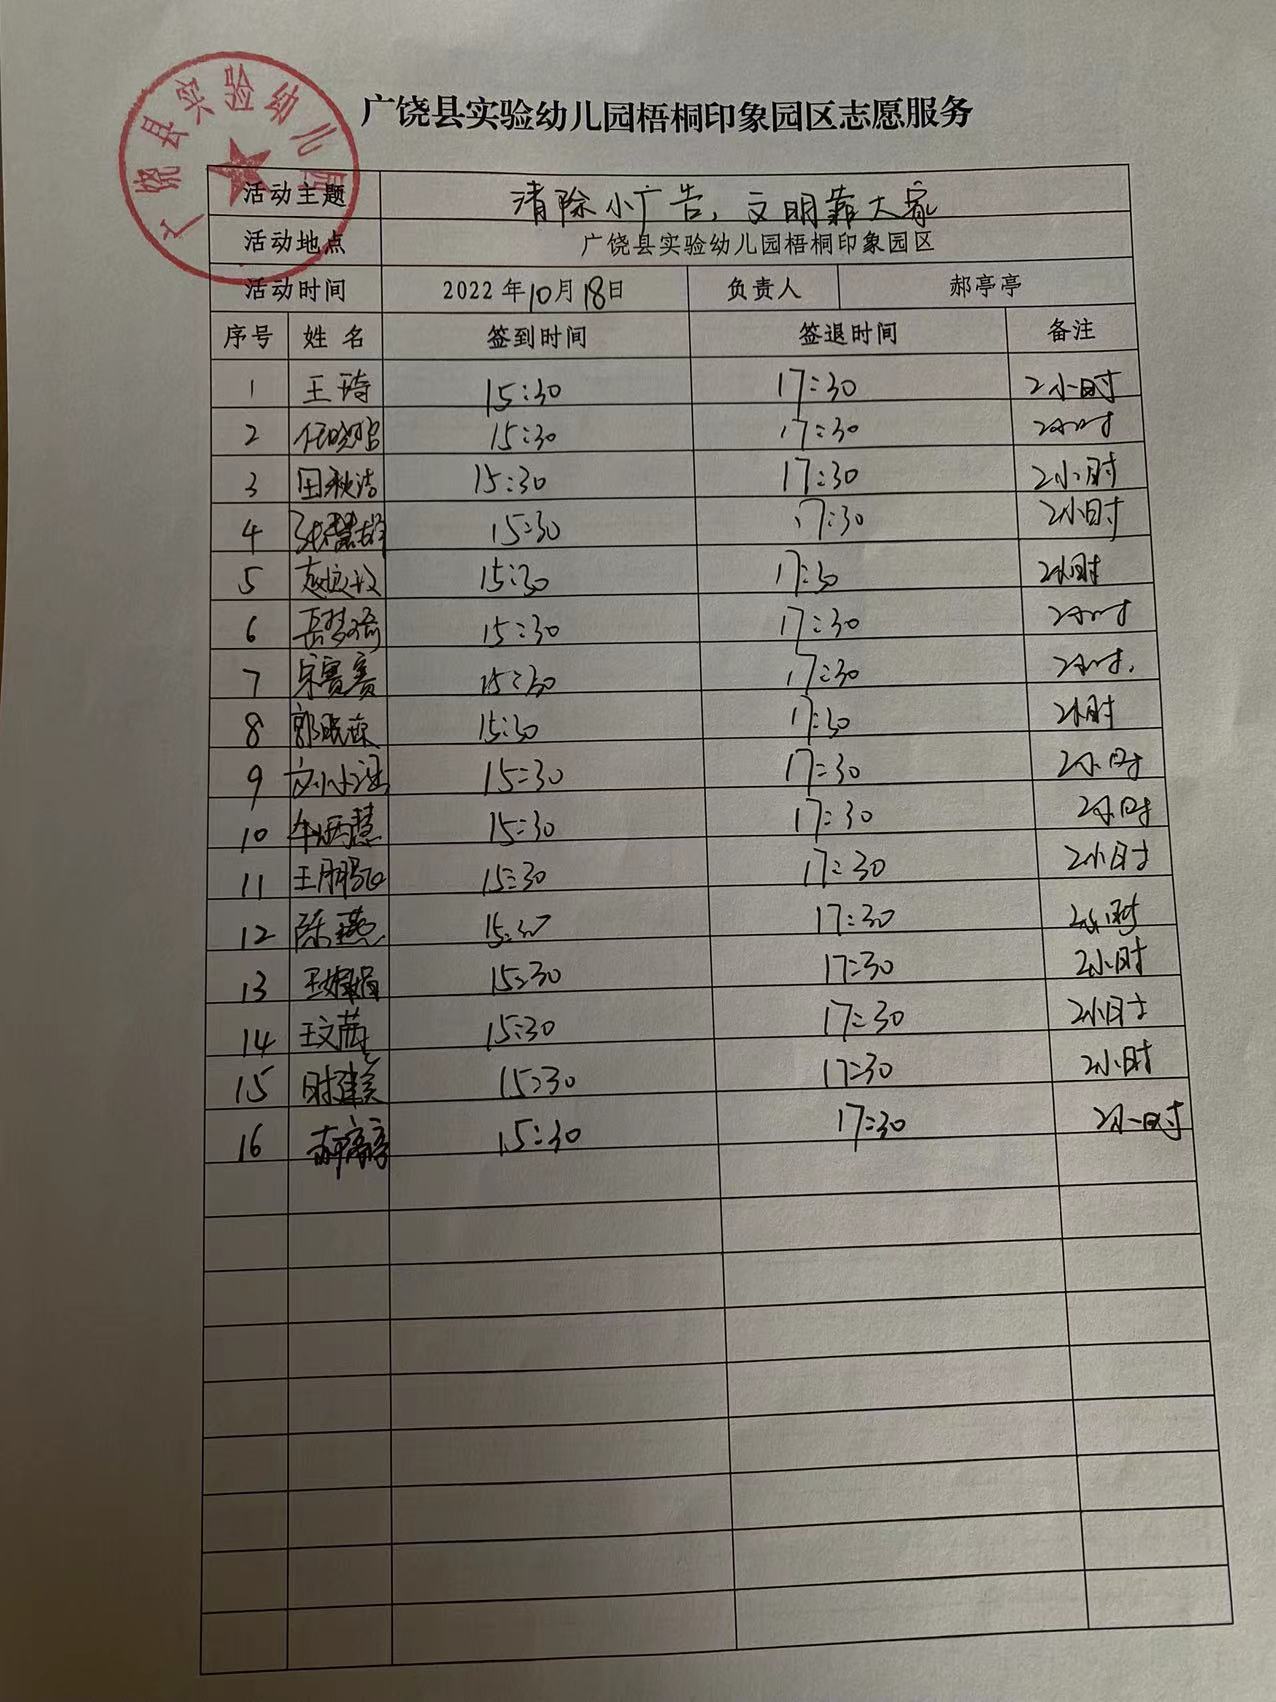 广饶县实验幼儿园
广饶县实验幼儿园梧桐印象园区志愿服务
活动主题 清除小广告，文明靠大家
活动地点 广饶县实验幼儿园梧桐印象园区
活动时间 2022年10月18日 负责人 郝亭亭
序号 姓名 签到时间 签退时间 备注
1 王琦 15:30 17:30 2小时
2 15:30 17:30 2小时
3 田秋洁 15:30 17:30 2小时
4 15:30 17:30 2小时
5 15:30 17:30 2小时
6 岳梦瑶 15:30 17:30 2小时
7 宋赛赛 15:30 17:30 2小时.
8 郭晓萩 15:30 17:30 2小时
9 15:30 17:30 2小时
10 15:30 17:30 2小时
11 王鹏飞 15:30 17:30 2小时
12 陈燕 15:30 17:30 2小时
13 王娟娟 15:30 17:30 2小时
14 王文茜 15:30 17:30 2小时
15 时建美 15:30 17:30 2小时
16 郝亭亭 15:30 17:30 2小时